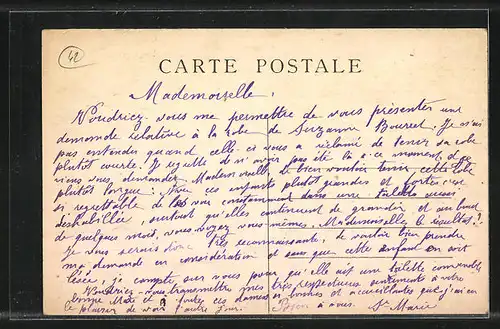 42
CARTE POSTALE
Mademoiselle,
Voudriez-vous me permettre de vous présenter une
demande relative à la robe de Suzanne Bourrel. Je n'ai
pas entendu quand celle-ci vous a réclamé de tenir sa robe
plutôt courte. Je regrette de n'avoir pas été là à ce moment, je
viens vous demander Mademoiselle, de bien vouloir tenir cette robe
plutôt longue: Avec ces enfants plutôt grandes et fortes c'est
si regrettable de les voir constamment dans une toilette
déshabillée, surtout qu'elles continuent de grandir et au bout
de quelques mois, vous voyez vous-mêmes, Mademoiselle le résultat?
Je vous serais donc très reconnaissante, de vouloir bien prendre
ma demande en considération et sans que cette enfant en soit
lésée, je compte sur vous pour qu'elle ait une toilette convenable
Voudriez-vous transmettre mes très respectueux sentiments à votre
bonne et à toutes ces dames si bonnes et accueillantes que j'ai eu
le plaisir de voir l'autre jour. à vous. St Marie